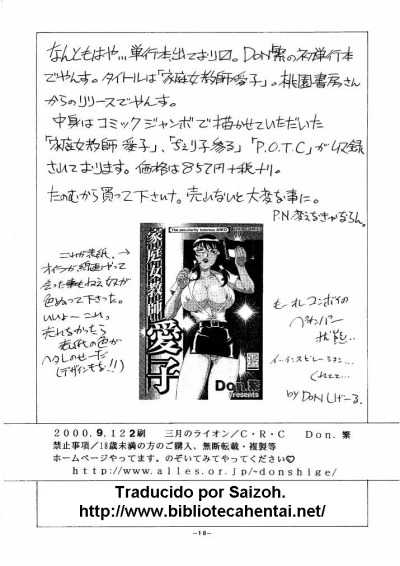 なんともはや…単行本出ております。Don繁の初単行本
でやんす。タイトルは「家庭女教師愛子」。桃園書房さん
からのリリースでやんす。
中身はコミックジャンボで描かせていただいた
「家庭女教師 愛子」、「ちえり子参る」「P.O.T.C」が収録
されております。価格は857円+税ナリ。
たのむから買って下さいナ。売れないと大変な事に。
P.N.変えるきゃなるらん。
これが表紙。→
オイラが線画やって
色ぬって下さった。
いいよ〜これっ
売れなかったら
表紙の色が
ヘタレのせーだ
(デザインもな!!)
The peculiarity tutoress AIKO
家庭女教師
愛子
Don.繁
presents
by Donしげーる.
2000.9.12 2刷 三月のライオン/C・R・C Don. 繁
禁止事項/18歳未満の方のご購入、無断転載・複製等
ホームページやってます。のぞいてみてやってください♡
http://www.alles.or.jp/~donshige/
Traducido por Saizoh.
http://www.bibliotecahentai.net/
-18-